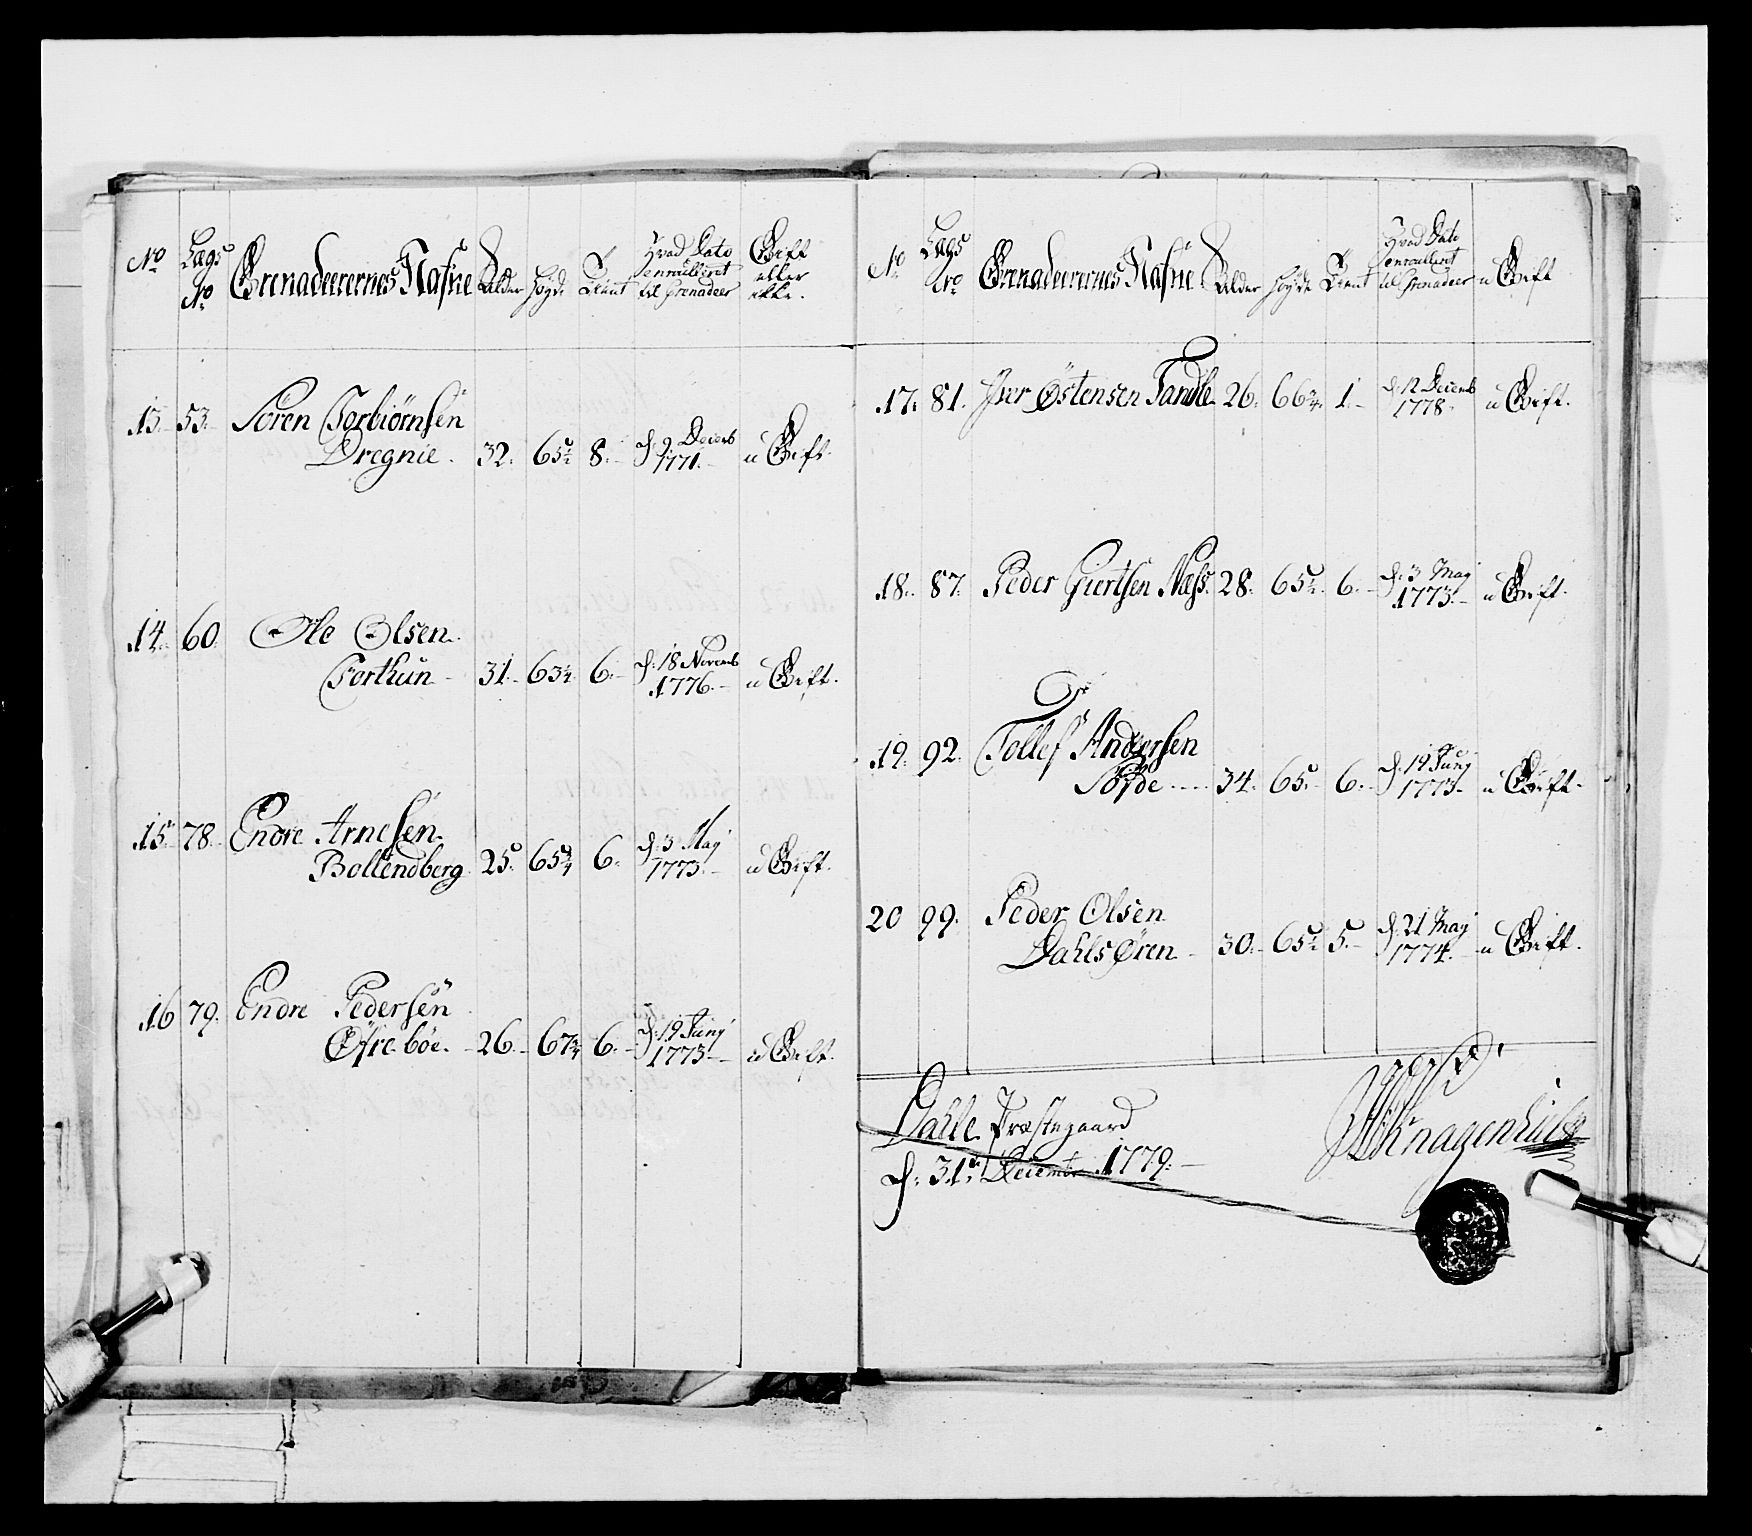 No Lægs No Grenadeerernes Nafne Alder Høyde Tient Hvad Dato enroulleret til Grenadeer Gift eller ikke.
13. 53. Soren Torbiørnsen
Dregnie. 32. 65½ 8. d: 9 Decemb 1771. u Gift.
14. 60. Ole Olsen
Forthun 31. 63¼ 6. d: 18 Novemb 1776. u Gift.
15. 78. Endre Arnesen
Bollendberg 25. 65¾ 6. d: 3 Maÿ 1773. u Gift.
16 79. Endre Pedersen
Øfrebøe. 26. 67¾ 6. d: 19 Junÿ 1773. u Gift.
No Lægs No Grenadeerernes Nafne Alder Høyde Tient Hvad Dato enroulleret til Grenadeer u Gift
17. 81. Iver Østensen Tandle 26. 66¾. 1. d: 12 Decemb 1778. u Gift.
18. 87. Peder Giertsen Næss. 28. 65½. 6. d: 3 Maÿ 1773. u Gift.
19. 92. Tollef Andersen
34. 65. 6. d: 19 Junÿ 1773. u Gift.
20 99. Peder Olsen
Dahlsøren 30. 65½ 5. d: 21 Maÿ 1774. u Gift.
Dahle Præstegaard
d: 31te Decembr 1779.